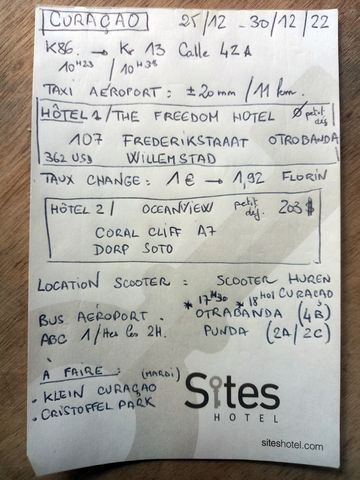 CURAÇAO 25/12 - 30/12/22
K86. → Kr 13 Calle 42A
10H23 / 10H38
TAXI AÉROPORT : ± 20mm / 11 km.
HÔTEL 1 / THE FREEDOM HOTEL Ø petit déj.
107 FREDERIKSTRAAT OTROBANDA
362 USD WILLEMSTAD
TAUX CHANGE : 1€ → 1,92 FLORIN
HÔTEL 2 / OCEANVIEW petit déj. 203$
CORAL CLIFF A7
DORP SOTO
LOCATION SCOOTER : SCOOTER HUREN
CURAÇAO
* 17H30 * 18H01
BUS AÉROPORT . OTRABANDA (4B)
ABC 1/ les 2H. PUNDA (2A/2C)
À FAIRE : (MARDI)
. KLEIN CURAÇAO
. CRISTOFFEL PARK
Sites
HOTEL
siteshotel.com